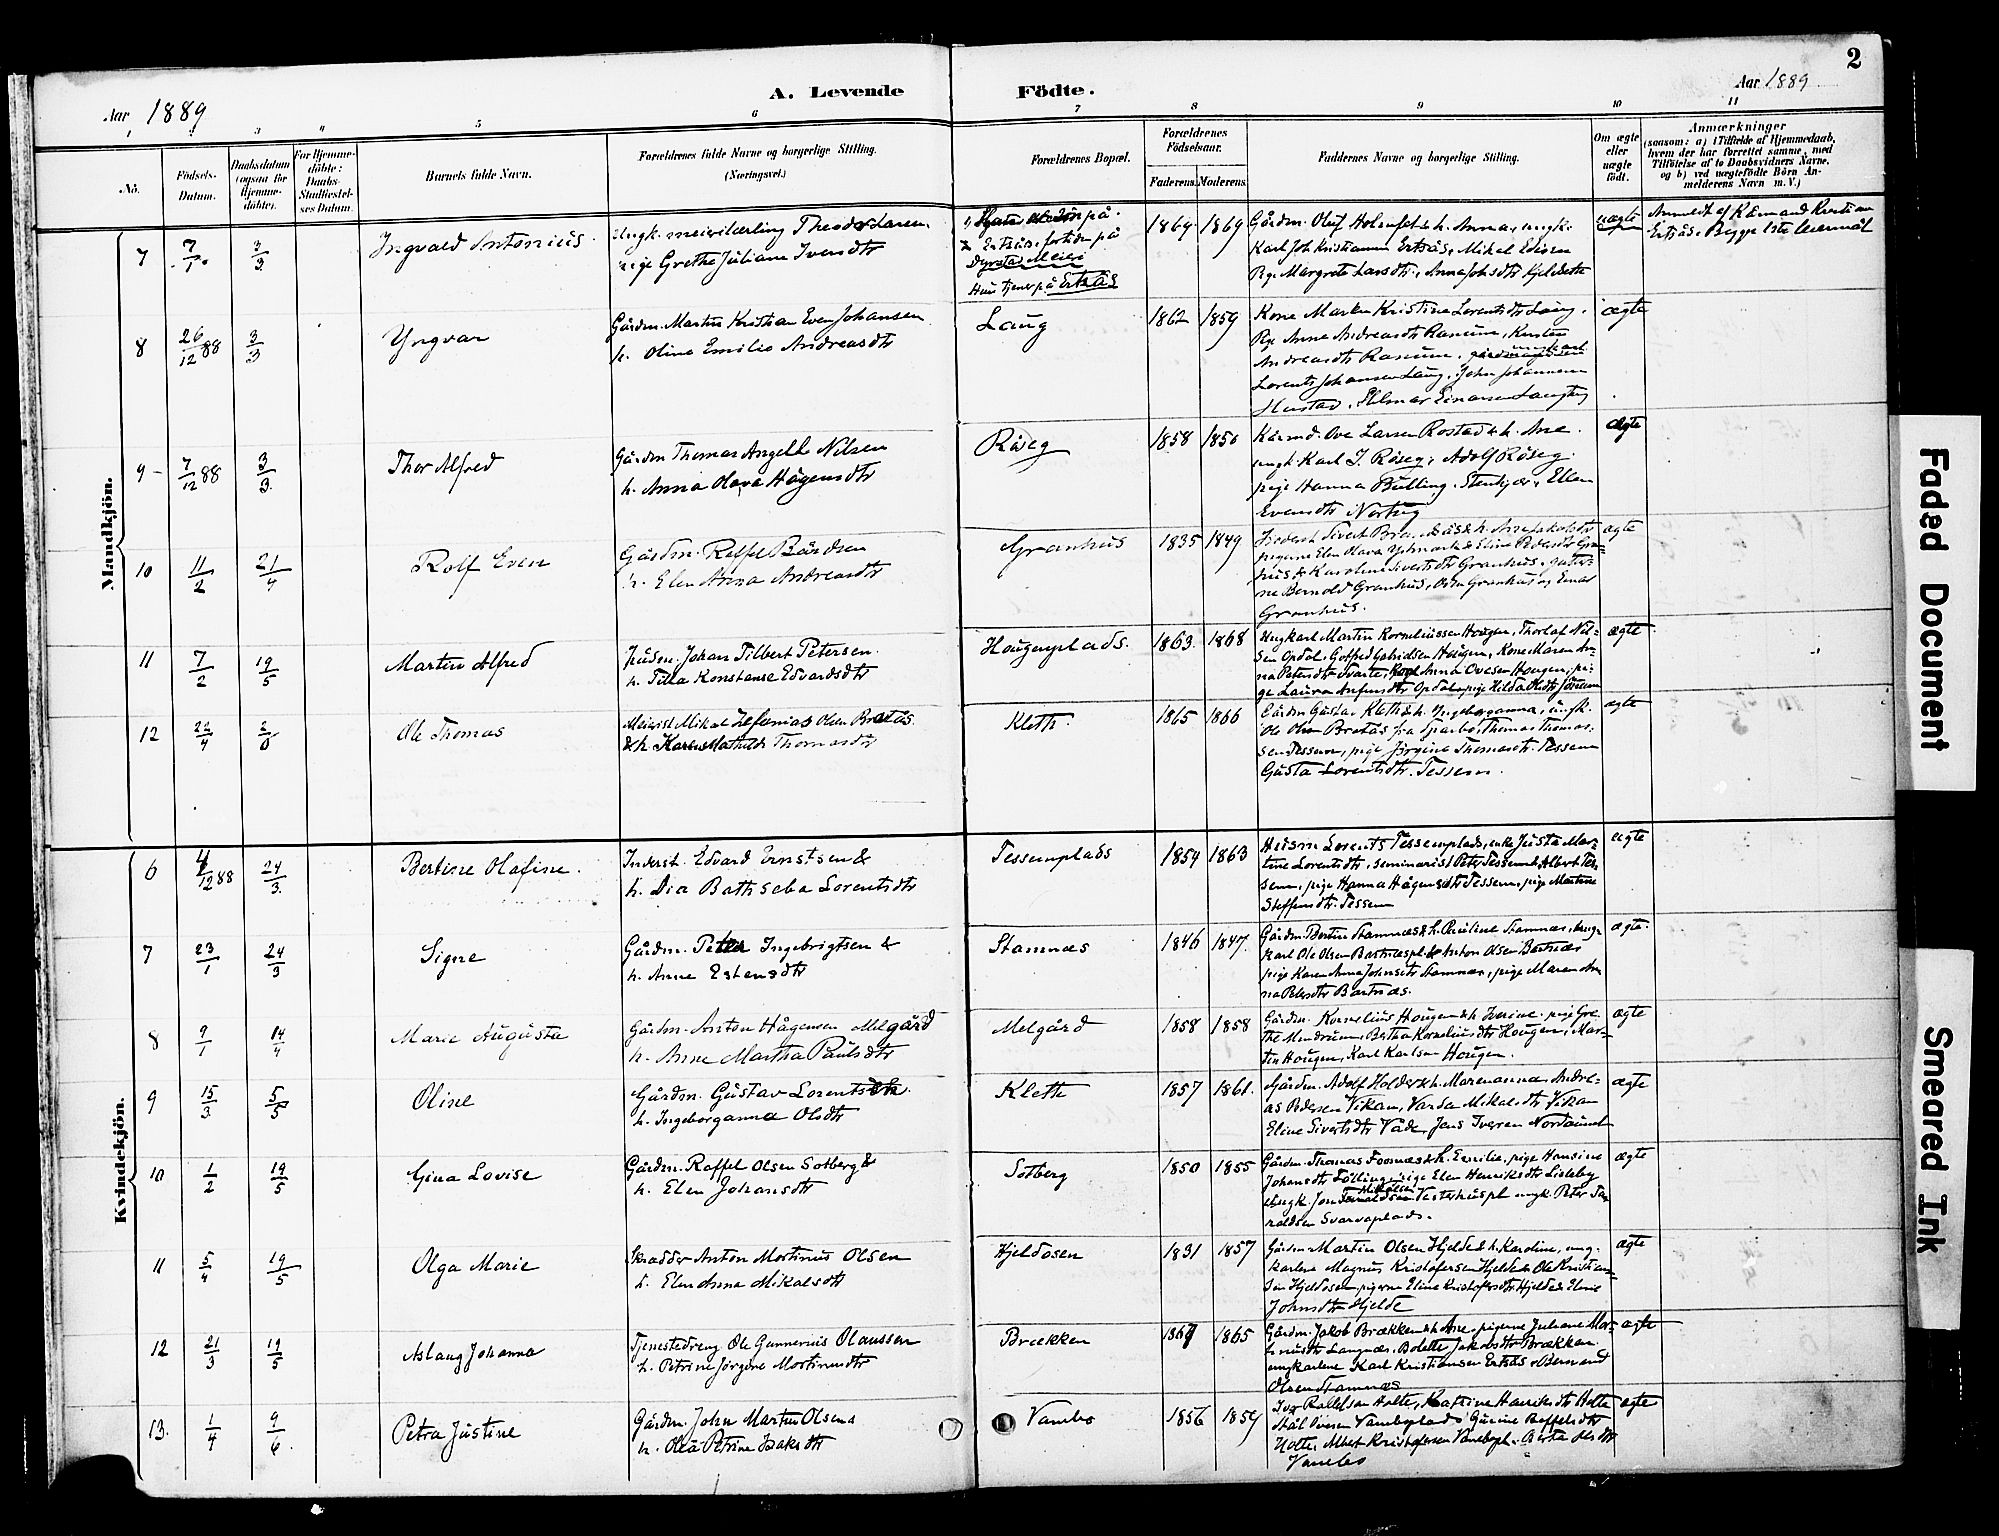 2
Aar 1889
A. Levende Födte.
Aar 1889
1 3 " 5 6 7 8 9 10 11
No.
Födsels-Datum.
Daabsdatum (ogsaa for Hjemme-döbte).
For Hjemme-döbte: Daabs-Stadfæstel-ses Datum.
Barnets fulde Navn.
Forældrenes fulde Navne og borgerlige Stilling.
(Næringsvei.)
Forældrenes Bopæl.
Forældrenes Födselsaar.
Faderens. Moderens.
Faddernes Navne og borgerlige Stilling.
Om ægte eller uægte födt.
Anmærkninger
(saasom: a) i Tilfælde af Hjemmedaab,
hvem der har forrettet samme, med
Tilföielse af to Daabsvidners Navne,
og b) ved uægtefödte Börn An-
melderens Navn m. V.)
Mandkjön.
7 7/1 3/3 Ingvald Antonius.
Ungk. meierilærling Theodor Larsen
pige Grethe Juliane Iversdtr
på
Ertsås, fortiden på
Dyrstad Meieri
Hun tjener på Ertsås
1869 1869
Gårdm. Oluf Holmset & h. Anna, ungk.
Karl Joh Kristiansen Ertsås, Mikal Edisen
Pige Margrete Larsdtr, Anna Johsdtr Hjeldsette
uægte
Anmeldt af Kårmand Kristian
Ertsås. Begge 1ste leiermål
8 26/12 88 3/3 Yngvar
Gårdm. Martin Kristian Even Johansen
h. Oline Emilie Andreasdtr
Laug
1862 1859
Kone Marken Kristine Lorentsdtr Laug,
Pige Anne Andreasdtr Ranum, Kirsten
Andreasdtr Ranum, ungkarl
Lorents Johansen Laug, John Johannesen
Hustad, Hilmar Einarsen Laugby
ægte
9 7/12 88 3/3 Thor Alfred
Gårdm Thomas Angell Nilsen
h. Anna Olava Hågensdtr
Råseg
1858 1850
Kårmd. Ove Larsen Rostad & h. Ane.
ungk. Karl J. Råseg, Adolf Råseg.
pige Hanna Bulling, Stenkjær, Ellen
Evensdtr Nortug
ægte
10 11/2 21/4 Rolf Even
Gårdm. Roffel Bårdsen
h. Elen Anna Andreasdtr
Granhus
1835 1849
Inderst Sivert Brandsås & h. Ane Jakobsdtr
pigerne Elen Olava & Eline Pedersdtr Gran=
hus & Karoline Sivertsdtr Granhus, gutter-
ne Bernold Granhus, Osen Granhus og Einar
Granhus.
ægte
11 7/2 19/5 Martin Alfred
Johan Tilbert Petersen
h. Tilla Konstanse Edvardsdtr
Hougenplads.
1863 1868
Ungkarl Martin Korneliussen Hougen, Thorlaf Nil-
sen Opdal, Gotfred Gabrielsen Hougen, Kone Maren An-
na Petersdtr Svarte, Anna Ovesen Hougen, pi-
ge Laura Arnfinsdtr Opdal, pige Hilda Olsdtr
ægte
12 22/4 Ole Thomas
Meierist Mikal Zefanias Olsen Bratås
& h. Karen Mathilde Thomasdtr
Kleth.
1865 1866
Gårdm Gustav Kleth & h. Ingeborganna, ungk.
Ole Olsen Bratås fra Sparbo, Thomas Thomas-
sen Tessem, pige Jørgine Thomasdtr. Tessem
Gusta Lorentsdtr. Tessem.
ægte
Kvindekjön.
6 4/12 88 24/3 Bertine Olafine.
Inderst. Edvard Ernstsen &
h. Dia Bathseba Lorentsdtr
Tessemplads
1854 1863
Husm Lorents Tessemplads, enke Justa Mar-
tine Lorentsdtr, seminarist Peter Tessem & Albert Tes-
sem, pige Hanna Hågensdtr Tessem, pige Martine
Steffensdtr. Tessem
ægte
7 23/1 24/3 Signe
Gårdm. Peter Ingebrigtsen &
h. Anne Estensdtr
Stamnæs
1846 1847.
Gårdm. Bertin Stamnæs & h. Pauline Stamnæs, ung-
karl Ole Olsen Bartnæspl. & Anton Olsen Bartnæs
pige Karen Anna Johnsdtr Stamnæs, pige Maren An-
na Petersdtr Bartnæs.
ægte.
8 9/1 14/4 Marie Augusta
Gårdm. Anton Hågensen Melgård
h. Anne Martha Paulsdtr
Melgård
1858 1858
Gårdm. Kornelius Hougen & h. Iverine. pige Gre-
the Mendrum, Bertha Korneliusdtr Hougen, Mar-
tin Hougen, Karl Karlsen Hougen.
ægte
9 15/3 5/5 Oline
Gårdm. Gustav Lorentsen
h. Ingeborganna Olsdtr
Kleth
1857 1861.
Gårdm. Adolf Holder & h. Marenanna, Andre-
as Pedersen Vikan, Varda Mikalsdtr Vikan
Eline Sivertsdtr Våde, Jens Iversen Nordaunet
ægte
10 1/2 19/5 Gina Lovise
Gårdm. Roffel Olsen Sotberg &
h. Elen Johansdtr
Sotberg
1850 1855
Gårdm. Thomas Fosnæs & h. Emilie, pige Hansine
Johansdtr Følling, pige Elen Henriksdtr Lisleby
ungk. Jon Mikalsen Vesterhuspl. ungk. Peter Ta-
raldsen Svarvaplads.
ægte
11 5/4 19/5 Olga Marie
Skrædder Anton Martinus Olsen
h. Elen Anna Mikalsdtr
Hjeldosen
1831 1857
Gårdm Martin Olsen Hjelde & h. Karoline, ung-
karlene Magnus Kristofersen Hjelde & Ole Kristian-
sen Hjeldosen, pigerne Eline Kristofersdtr Hjelde & Elene
Johnsdtr Hjelde
ægte
12 21/3 19/5 Aslaug Johanna
Tjenestedreng Ole Gunnerius Olaussen
h. Petrine Jørgine Martinusdtr
Brækken
1867 1865
Gårdm. Jakob Brækken & h. Ane, pigerne Juliane Mar-
tinusdtr Langnes, Bolette Jakobsdtr Brækken
ungkarlene Karl Kristiansen Ertsås & Bernand
Olsen Stamnæs
ægte
13. 1/4 9/6. Petra Justine
Gårdm. John Martin Olsen &
h. Olea Petrine Isaksdtr
Vanebo
1856 1859
Iver Roffelsen Holte, Katrine Henriksdtr Holte
Ståle Ovesen Vaneboplads Gurine Roffelsdtr
Holte, Albert Kristofersen Vanebopl. Berta Olsdtr
Vanebo
ægte
Faded Document
Smeared Ink